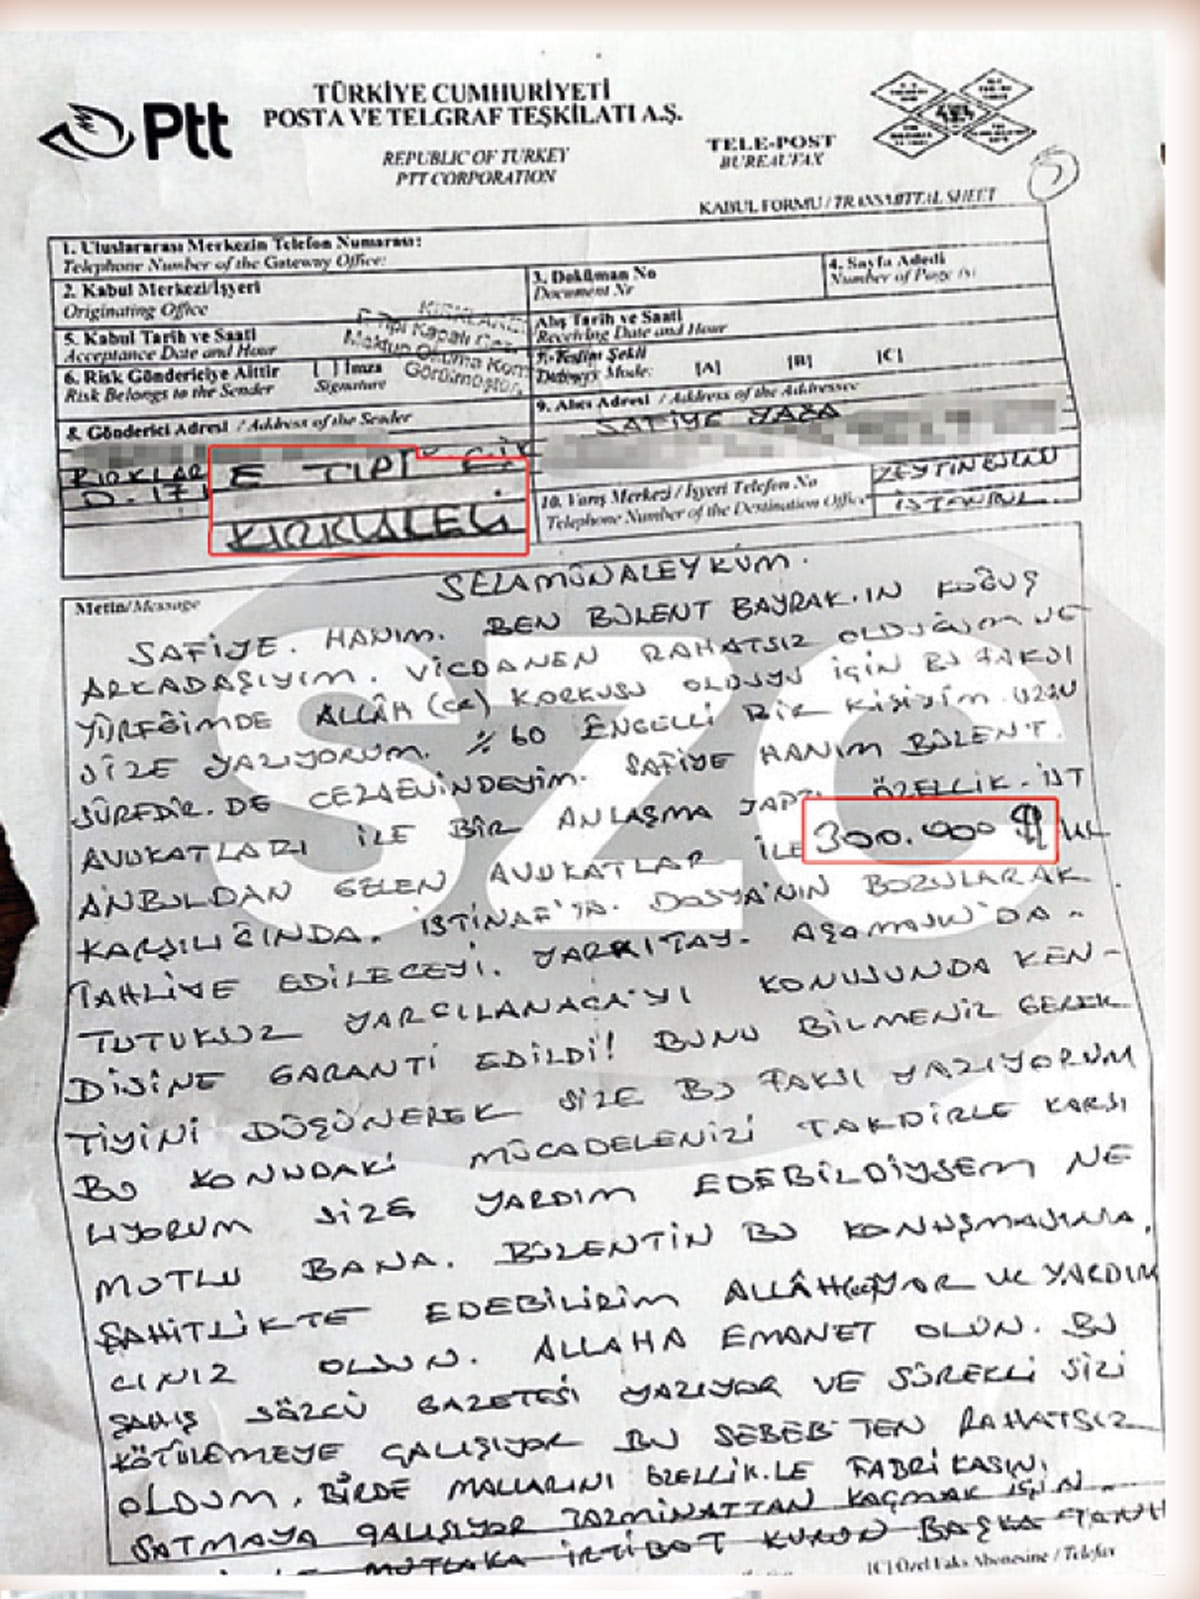 Ptt
TÜRKİYE CUMHURİYETİ
POSTA VE TELGRAF TEŞKİLATI A.Ş.
REPUBLIC OF TURKEY
PTT CORPORATION
TELE-POST
BUREAUFAX
KABUL FORMU / TRANSMITTAL SHEET
1. Uluslararası Merkezin Telefon Numarası:
Telephone Number of the Gateway Office:
2. Kabul Merkezi/İşyeri
Originating Office
3. Doküman No
Document Nr
4. Sayfa Adedi
Number of Page (s)
5. Kabul Tarih ve Saati
Acceptance Date and Hour
Alış Tarih ve Saati
Receiving Date and Hour
6. Risk Göndericiye Aittir
Risk Belongs to the Sender
[ ] İmza
Signature
E Tipi Kapalı
Mektup Okuma Kom
Görülmüştür.
7. Teslim Şekli
Delivery Mode:
[A] [B] [C]
8. Gönderici Adresi / Address of the Sender
9. Alıcı Adresi / Address of the Addressee
SAFİYE
E TİPİ
KIRKLARELİ
10. Varış Merkezi / İşyeri Telefon No
Telephone Number of the Destination Office
ZEYTİNBURNU
İSTANBUL
Metin/Message
SELAMÜNALEYKÜM.
SAFİYE. HANIM. BEN BÜLENT BAYRAK.IN KOĞUŞ
ARKADAŞIYIM. VİCDANEN RAHATSIZ OLDUĞUM VE
YÜREĞİMDE ALLÂH (CC) KORKUSU OLDUĞU İÇİN BU FAKSI
SİZE YAZIYORUM. % 60 ENGELLİ BİR KİŞİYİM. UZUN
SÜREDİR. DE CEZAEVİNDEYİM. SAFİYE HANIM BÜLENT.
AVUKATLARI İLE BİR ANLAŞMA YAPTI ÖZELLİK. İST
ANBULDAN GELEN AVUKATLAR İLE 300.000 $
KARŞILIĞINDA. İSTİNAF'TA. DOSYA'NIN BOZULARAK
TAHLİYE EDİLECEYİ. YARKITAY. AŞAMASIN'DA.
TUTUKSUZ YARGILANACA'YI KONUSUNDA KEN-
DİSİNE GARANTİ EDİLDİ! BUNU BİLMENİZ GEREK
TİYİNİ DÜŞÜNEREK SİZE BU FAKSI YAZIYORUM
BU KONUDAKİ MÜCADELENİZİ TAKDİRLE KARŞI
LIYORUM SİZE YARDIM EDEBİLDİYSEM NE
MUTLU BANA. BÜLENTİN BU KONUŞMASINA.
ŞAHİTLİKTE EDEBİLİRİM ALLÂH(CC) YAR VE YARDIM
CINIZ OLSUN. ALLAHA EMANET OLUN. BU
ŞAHIS SÖZCÜ GAZETESİ YAZIYOR VE SÜREKLİ SİZİ
KÖTÜLEMEYE ÇALIŞIYOR BU SEBEB'TEN RAHATSIZ
OLDUM. BİRDE MALLARINI ÖZELLİK.LE FABRİKASINI
SATMAYA ÇALIŞIYOR TAZMİNATTAN KAÇMAK İÇİN.
MUTLAKA İRTİBAT KURUN BAŞKA
[C] Özel Faks Abonesine / Telefax